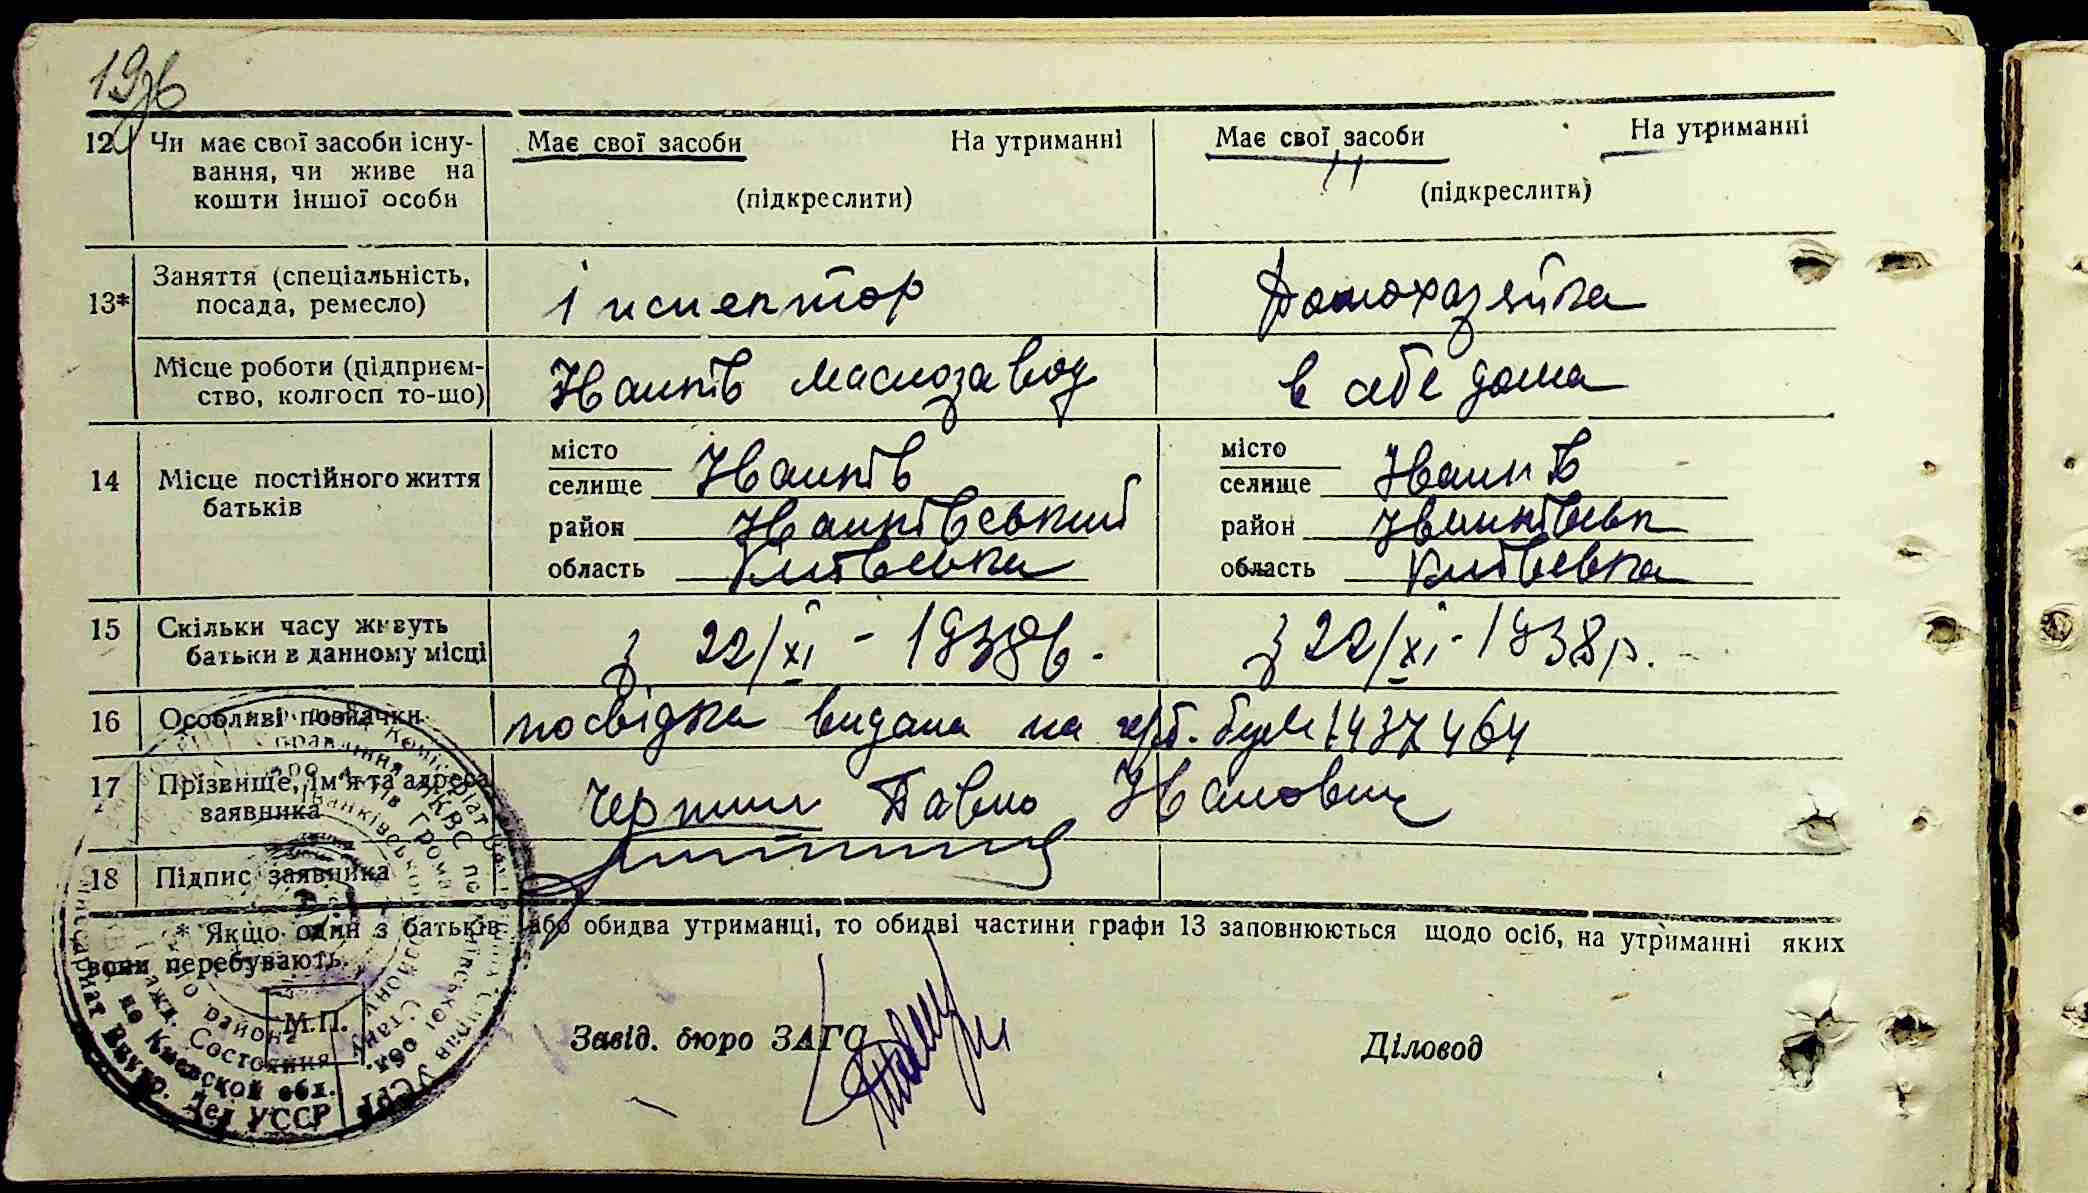 196
12 Чи має свої засоби існу- Має свої засоби На утриманні Має свої засоби На утриманні
вання, чи живе на
кошти іншої особи (підкреслити) (підкреслити)
13* Заняття (спеціальність, інспектор Домохазяйка
посада, ремесло)
Місце роботи (підприєм- Іванків маслозавод в себе дома
ство, колгосп то-що)
14 Місце постійного життя місто місто
батьків селище Іванків селище Іванків
район Іванківський район Іванківськ
область Київська область Київська
15 Скільки часу живуть з 22/XI - 1938р. з 22/XI - 1938р.
батьки в данному місці
16 Особливі позначки посвідка видана на герб. бум 1437464
17 Прізвище, ім'я та адреса Павло Іванович
заявника
18 Підпис заявника
* Якщо один з батьків або обидва утриманці, то обидві частини графи 13 заповнюються щодо осіб, на утриманні яких
вони перебувають.
М.П. Завід. бюро ЗАГС Діловод
района
Состояния
по Киевской обл.
Внутр. Дел УССР